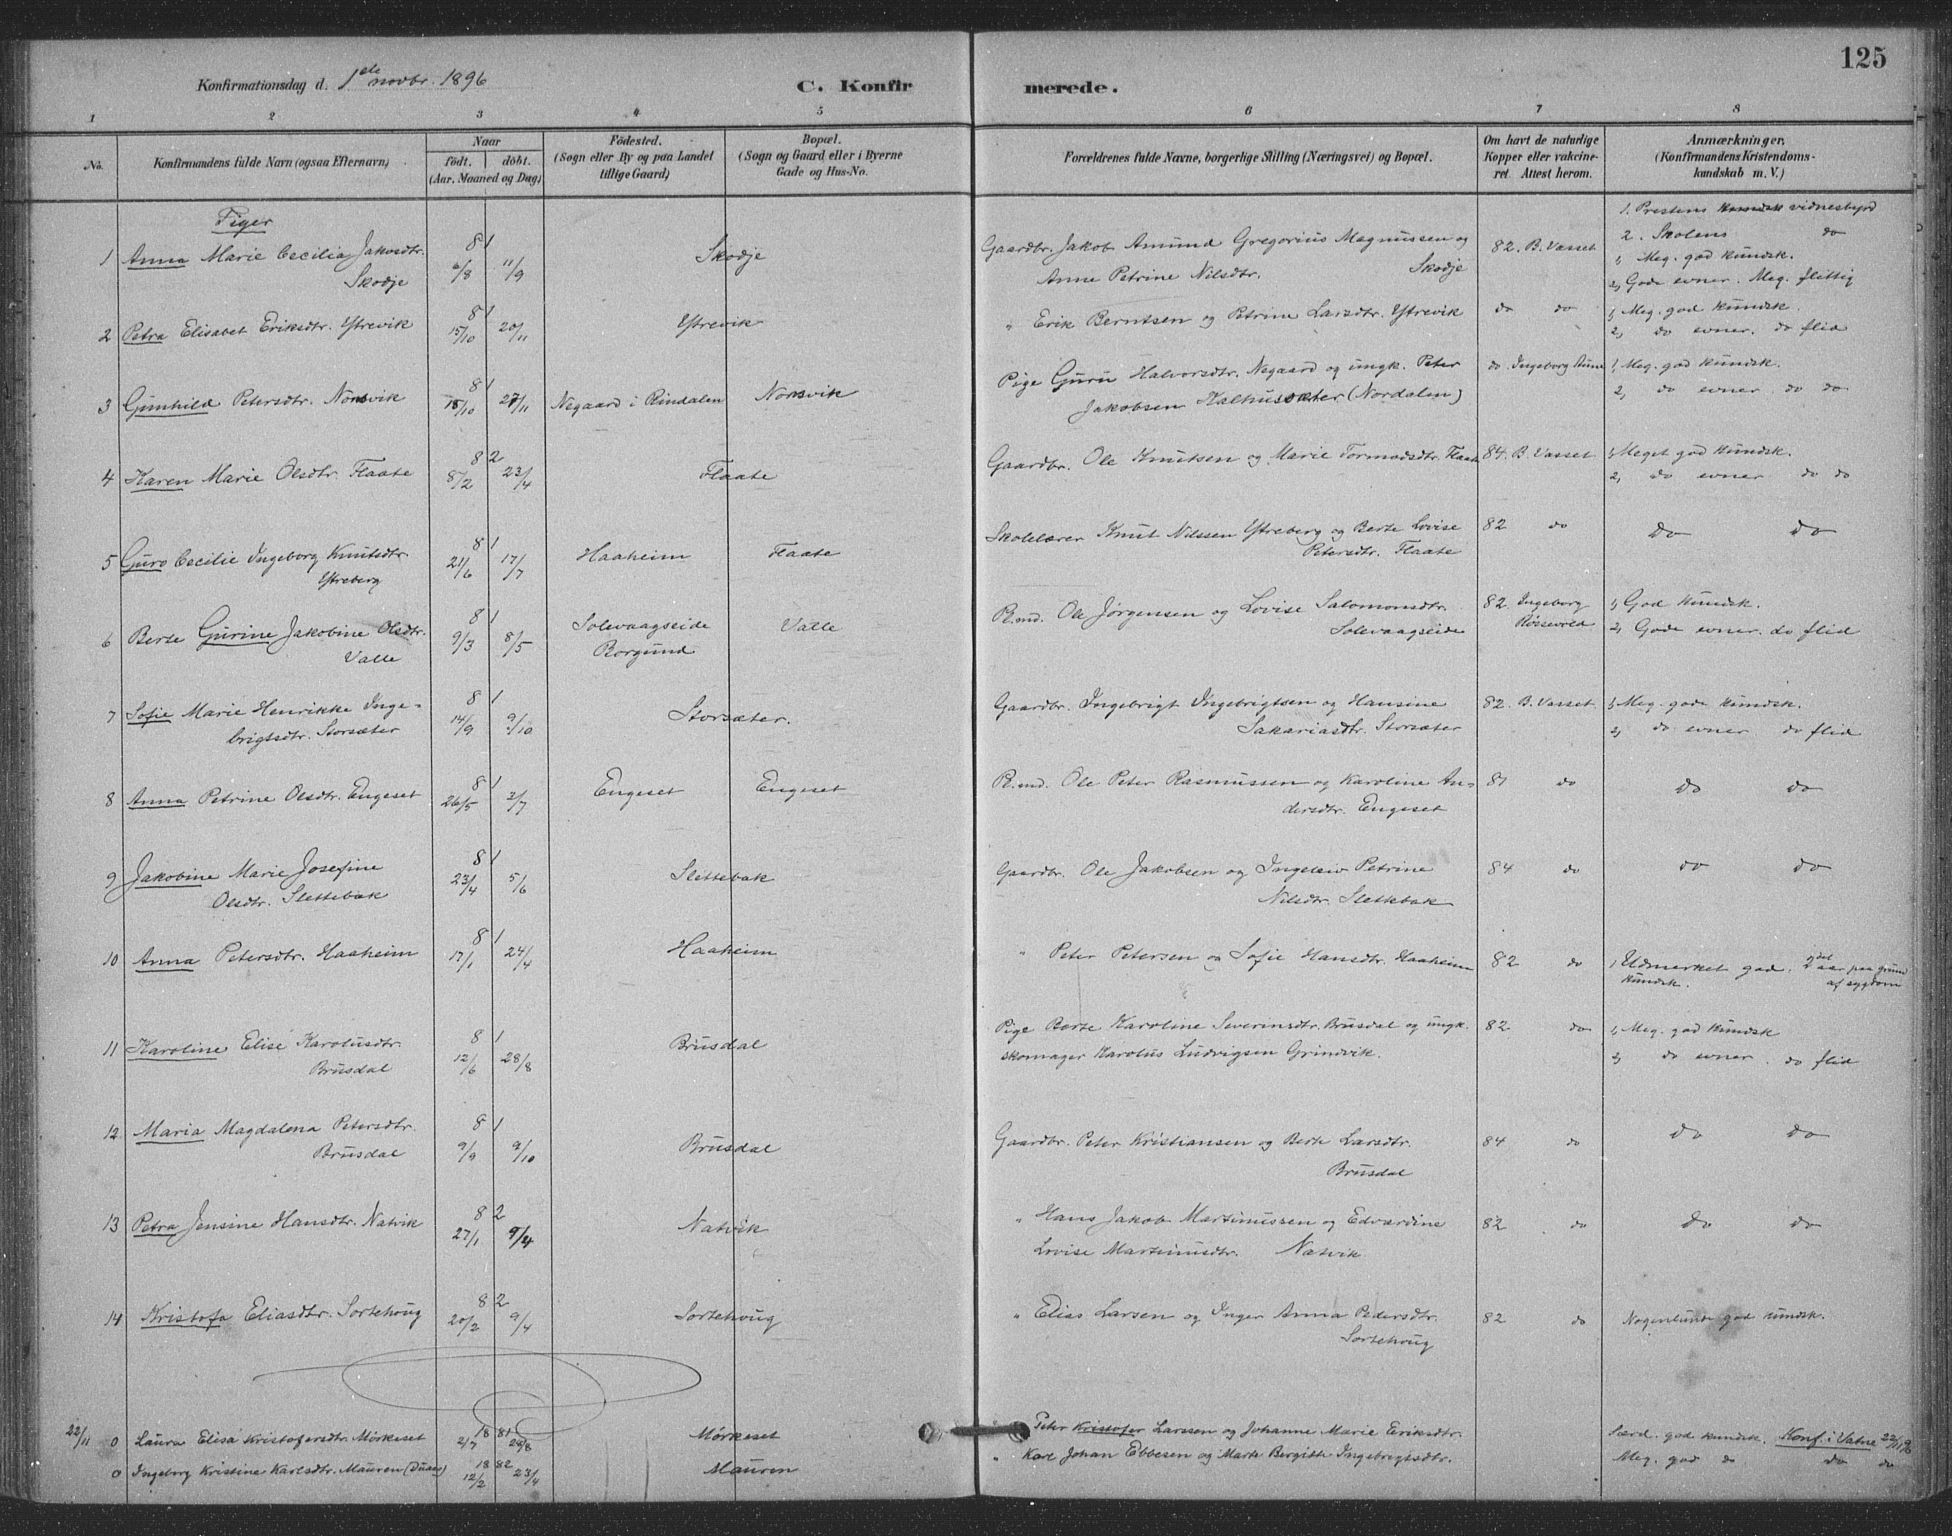 125
Konfirmationsdag d. 1ste novbr. 1896
C. Konfirmerede.
1 2 3 4 5 6 7 8
No. Konfirmandens fulde Navn (ogsaa Efternavn) Naar födt. döbt. (Aar, Maaned og Dag) Födested. (Sogn eller By og paa Landet tillige Gaard) Bopæl. (Sogn og Gaard eller i Byerne Gade og Hus-No. Forældrenes fulde Navne, borgerlige Stilling (Næringsvei) og Bopæl. Om havt de naturlige Kopper eller vakcineret. Attest herom. Anmærkninger. (Konfirmandens Kristendomskundskab m. V.)
Piger
1. Prestens vidnesbyrd
2. Skolens do
1 Anna Marie Cecilia Jakobsdtr. 81 Skodje Gaardbr. Jakob Amund Gregorius Magnussen og 82. B. Vasset 1, Meg. god kundsk.
Skodje 6/8 11/9 Anne Petrine Nilsdtr. Skodje 2, Gode evner. Meg. flittig
2 Petra Elisabet Eriksdtr. Ytrevik 81 15/10 20/11 Ytrevik " Erik Berntsen og Petrine Larsdtr. Ytrevik do do 1, Meg. god kundsk.
2, do evner. do flid
3 Gunhild Petersdtr. Norsvik 81 15/10 27/11 Negaard i Rindalen Norsvik Pige Guru Halvorsdtr. Negaard og ungk. Peter do. Ingeborg 1, Meg. god kundsk.
Jakobsen (Nordalen) 2, do evner do do
4 Karen Marie Olsdtr. Flaate 82 8/2 23/4 Flaate Gaardbr. Ole Knutsen og Marie Tormodsdtr. Flaate 84. B. Vasset 1, Meget god kundsk.
2, do evner do do
5 Guro Cecilie Ingeborg Knutsdtr. 81 21/6 17/7 Haaheim Flaate Skolelærer Knut Nilssen Ytreberg og Berte Lovise 82 do do do
Ytreberg Petersdtr. Flaate
6 Berte Gurine Jakobine Olsdtr. 81 9/3 8/5 Solevaagseide Valle P.md. Ole Jørgensen og Lovise Salomonsdtr. 82. Ingeborg 1, God kundsk.
Valle Borgund Solevaagseide Røisevold 2, Gode evner. do flid
7 Sofie Marie Henrikke Inge- 81 14/9 9/10 Storsæter. Gaardbr. Ingebrigt Ingebrigtsen og Hansine 82. B. Vasset 1, Meg. gode kundsk.
brigtsdtr. Storsæter Sakariasdtr. Storsæter 2, do evner do flid
8 Anna Petrine Olsdtr. Engeset 81 26/5 3/7 Engeset Engeset P.md. Ole Peter Rasmussen og Karoline An- 81 do do do
dersdtr. Engeset
9 Jakobine Marie Josefine 81 23/4 5/6 Slettebak Gaardbr. Ole Jakobsen og Ingeleiv Petrine 84 do do do
Olsdtr. Slettebak Nilsdtr. Slettebak
10 Anna Petersdtr. Haaheim 81 17/1 24/4 Haaheim " Peter Petersen og Sofie Hansdtr. Haaheim 82 do 1, Udmerket god. 2det aar paa grund
kundsk. af sygdom
11 Karoline Elise Karolusdtr. 81 12/6 28/8 Brusdal Pige Berte Karoline Severinsdtr. Brusdal og ungk. 82 do 1, Meg. god kundsk
Brusdal skomager Karolus Ludvigsen Grindvik. 2, do evner. do flid
12 Maria Magdalena Petersdtr. 81 9/9 9/10 Brusdal Gaardbr. Peter Kristiansen og Berte Larsdtr. 84 do do do
Brusdal Brusdal
13 Petra Jensine Hansdtr. Natvik 82 27/1 9/4 Natvik " Hans Jakob Martinussen og Edvardine 82 do do do
Lovise Martinusdtr. Natvik
14 Kristofa Eliasdtr. Sortehoug 82 20/2 9/4 Sortehoug " Elias Larsen og Inger Anna Pedersdtr. 82 do Nogenlunde god kundsk.
Sortehoug
22/11 0 Laura Elisa Kristofersdtr. Mørkeset 1881 2/7 28/8 Mørkeset Peter Kristofer Larssen og Johanne Marie Eriksdtr. Særd. god kundsk. Konf. i Vatne 22/11 96
0 Ingeborg Kristine Karlsdtr. Mauren 1882 12/2 23/4 Mauren " Karl Johan Ebbesen og Marte Bergithe Ingebrigtsdtr. Meg. god do do do